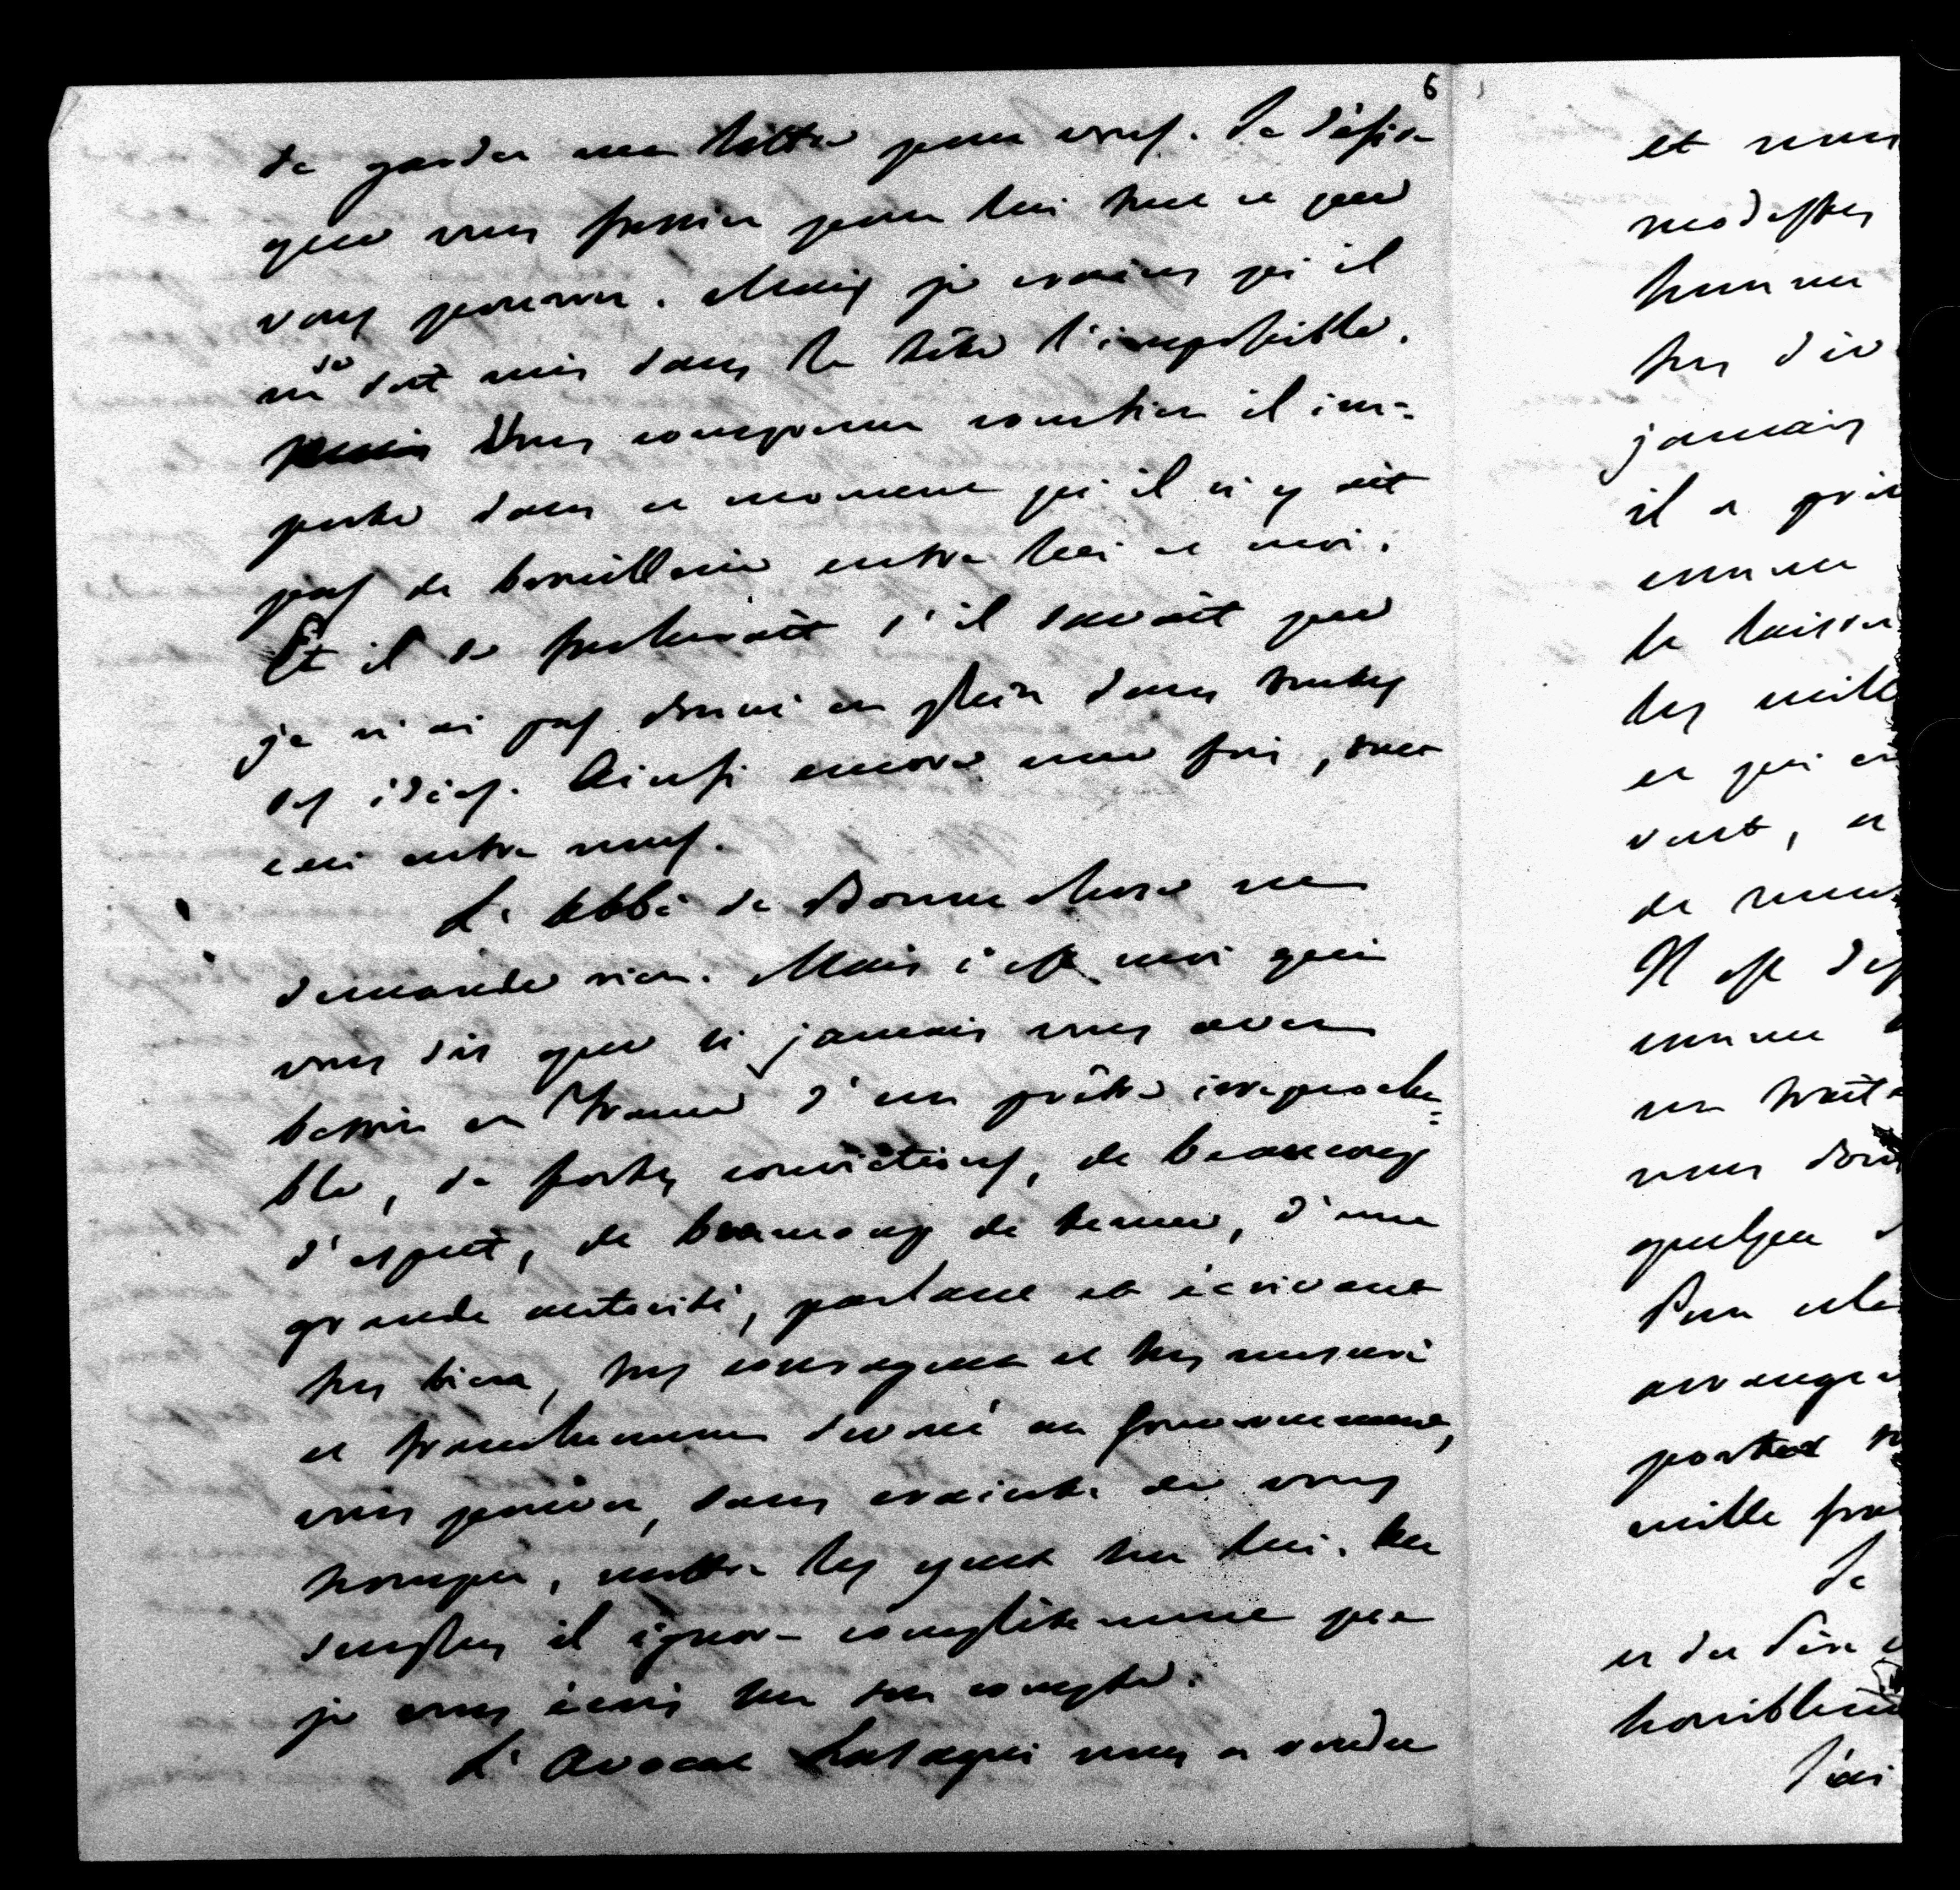 6
de garder ma lettre pour vous. Je désire
que vous fassiez pour lui tout ce que
vous pourrez. Mais je crains qu'il
ne se soit mis dans la tête l'impossible.
Vous comprenez combien il im=
porte dans ce moment qu'il n'y ait
pas de brouillerie entre lui et moi.
Et il se fâcherait s'il savait que
je n'ai pas donné en plein dans toutes
ses idées. Ainsi encore une fois, tout
ceci entre nous.
L'Abbé de Bonnechose ne
demande rien. Mais c'est moi qui
vous dis que si jamais vous avez
besoin en France d'un prêtre irréprocha=
ble, de fortes convictions, de beaucoup
d'esprit, de beaucoup de tenue, d'une
grande autorité, parlant et écrivant
très bien, très courageux et très mesuré
et franchement dévoué au Gouvernement,
vous pouvez, sans crainte de vous
tromper, mettre les yeux sur lui. Au
surplus il ignore complètement que
je vous écris sur son compte.
L'Avocat nous a rendu
et nous
modestes
homme
très div
jamais
il a pris
comme
le laisser
les mille
et qui en
vent, et
de nous
Il est
comme
un trait
vous
quelque
Pour cela
arrange
porter
mille fra
Je
et du Père
horriblem
J'ai